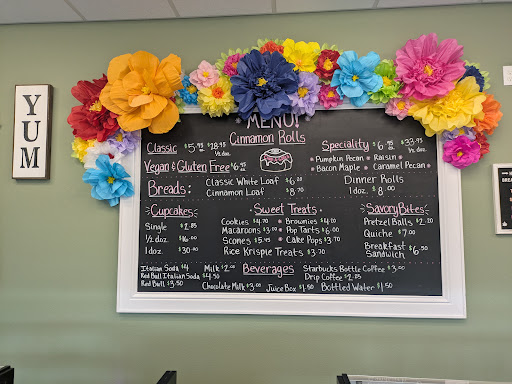 YUM
MENU
Cinnamon Rolls
Classic $5.95 each $28.95 ½ doz.
Speciality $6.95 each $33.95 ½ doz.
Vegan & Gluten Free $6.95
• Pumpkin Pecan • Raisin •
• Bacon Maple • Caramel Pecan •
Breads: Classic White Loaf $6.20
Cinnamon Loaf $8.70
Dinner Rolls
1 doz. $8.00
Cupcakes
Single $2.85
½ doz $16.00
1 doz
Sweet Treats
Cookies $4.70 • Brownies $4.20
Macaroons $3.70 • Pop Tarts $6.00
Scones $5.45 • Cake Pops $3.70
Rice Krispie Treats $3.70
Savory Bites
Pretzel Balls $2.20
Quiche $7.00
Breakfast Sandwich $6.50
Beverages
Italian Soda $4
Red Bull Italian Soda $4.50
Red Bull $3.50
Milk $2.00
Starbucks Bottle Coffee $3.00
Drip Coffee $2.85
Chocolate Milk $3.00 Juice Box $1.50 Bottled Water $1.50